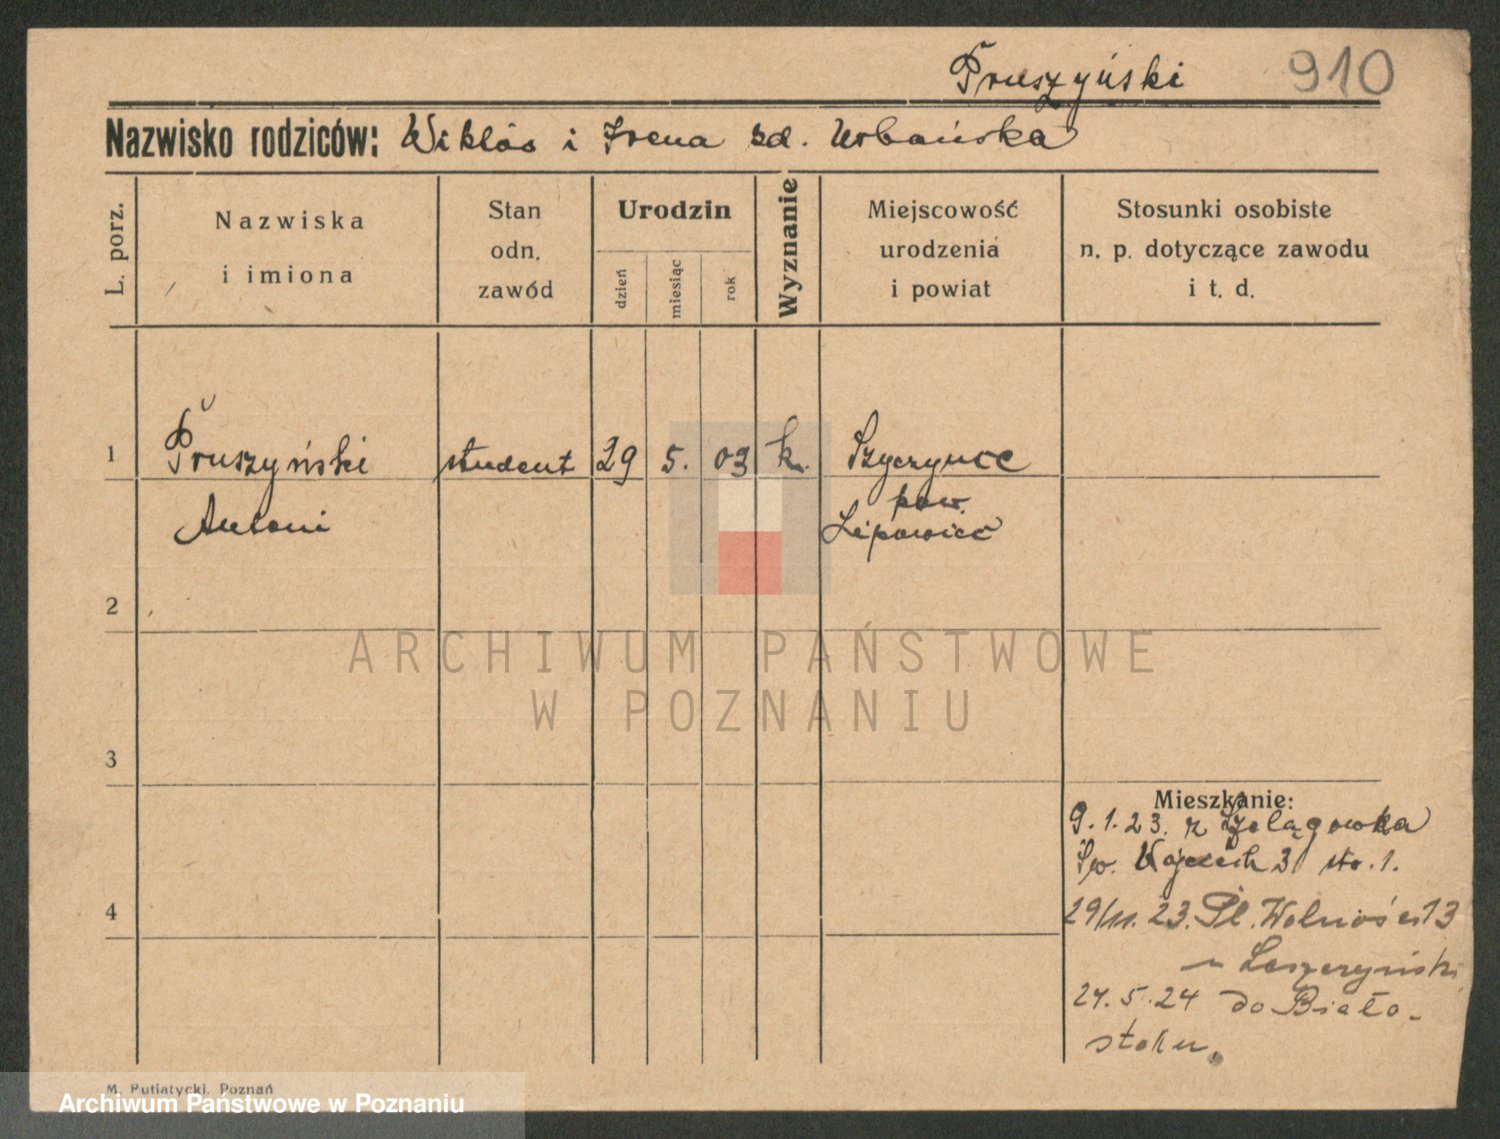 Pruszyński 910
Nazwisko rodziców: Wiktor i Irena zd. Urbańska
L. porz.
Nazwiska
i imiona
Stan
odn.
zawód
Urodzin
dzień
miesiąc
rok
Wyznanie
Miejscowość
urodzenia
i powiat
Stosunki osobiste
n. p. dotyczące zawodu
i t. d.
1 Pruszyński student 29 5. 03 k.
Antoni pow.
Lipowiec
2
3
4
ARCHIWUM PAŃSTWOWE
W POZNANIU
Mieszkanie:
9.1.23. z Szelągowka
Św. Wojciech 31 sto. 1.
29/11. 23. Pl. Wolności 13
Leszczyński
24.5.24 do Biało-
stoku.
M. Putiatycki, Poznań
Archiwum Państwowe w Poznaniu